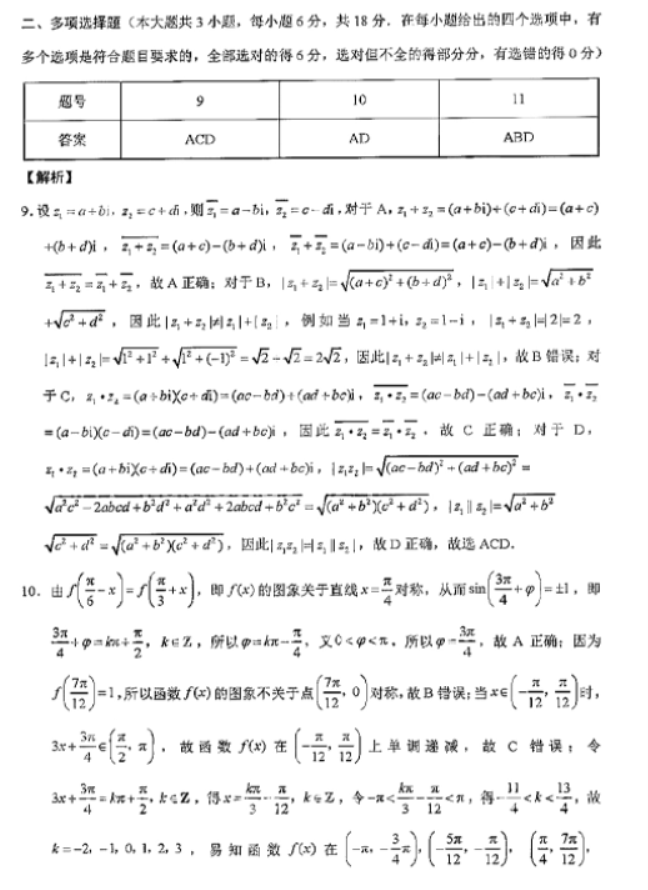 二、多项选择题（本大题共 3 小题，每小题 6 分，共 18 分．在每小题给出的四个选项中，有
多个选项是符合题目要求的，全部选对的得 6 分，选对但不全的得部分分，有选错的得 0 分）
题号 9 10 11
答案 ACD AD ABD
【解析】
9. 设 z₁=a+bi，z₂=c+di，则 z̅₁=a−bi，z̅₂=c−di，对于 A，z₁+z₂=(a+bi)+(c+di)=(a+c)
+(b+d)i，\overline{z₁+z₂}=(a+c)−(b+d)i，z̅₁+z̅₂=(a−bi)+(c−di)=(a+c)−(b+d)i，因此
\overline{z₁+z₂}=z̅₁+z̅₂，故 A 正确；对于 B，|z₁+z₂|=√((a+c)²+(b+d)²)，|z₁|+|z₂|=√(a²+b²)
+√(c²+d²)，因此|z₁+z₂|≠|z₁|+|z₂|，例如当 z₁=1+i，z₂=1−i，|z₁+z₂|=|2|=2，
|z₁|+|z₂|=√(1²+1²)+√(1²+(−1)²)=√2+√2=2√2，因此|z₁+z₂|≠|z₁|+|z₂|，故 B 错误；对
于 C，z₁•z₂=(a+bi)(c+di)=(ac−bd)+(ad+bc)i，\overline{z₁•z₂}=(ac−bd)−(ad+bc)i，z̅₁•z̅₂
=(a−bi)(c−di)=(ac−bd)−(ad+bc)i，因此 \overline{z₁•z₂}=z̅₁•z̅₂，故 C 正确；对于 D，
z₁•z₂=(a+bi)(c+di)=(ac−bd)+(ad+bc)i，|z₁z₂|=√((ac−bd)²+(ad+bc)²)=
√(a²c²−2abcd+b²d²+a²d²+2abcd+b²c²)=√((a²+b²)(c²+d²))，|z₁||z₂|=√(a²+b²)
√(c²+d²)=√((a²+b²)(c²+d²))，因此|z₁z₂|=|z₁||z₂|，故 D 正确，故选 ACD．
10. 由 f(π/6−x)=f(π/3+x)，即 f(x) 的图象关于直线 x=π/4 对称，从而 sin(3π/4+φ)=±1，即
3π/4+φ=kπ+π/2，k∈Z，所以 φ=kπ−π/4，又 0<φ<π，所以 φ=3π/4，故 A 正确；因为
f(7π/12)=1，所以函数 f(x) 的图象不关于点(7π/12，0)对称，故 B 错误；当 x∈(−π/12，π/12)时，
3x+3π/4∈(π/2，π)，故函数 f(x) 在(−π/12，π/12)上单调递减，故 C 错误；令
3x+3π/4=kπ+π/2，k∈Z，得 x=kπ/3−π/12，k∈Z，令−π<kπ/3−π/12<π，得−11/4<k<13/4，故
k=−2，−1，0，1，2，3，易知函数 f(x) 在(−π，−3/4π)，(−5π/12，−π/12)，(π/4，7π/12)，